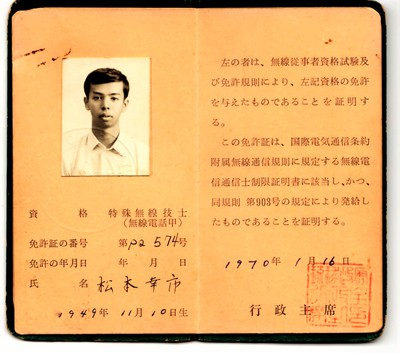 資格 特殊無線技士
(無線電話甲)
免許証の番号 第P2574号
免許の年月日 年 月 日
氏名 松本幸市
1949年 11月10日生
左の者は、無線従事者資格試験及
び免許規則により、左記資格の免許
を与えたものであることを証明す
る。
この免許証は、国際電気通信条約
附属無線通信規則に規定する無線電
信通信士制限証明書に該当し、かつ、
同規則 第903号の規定により発給し
たものであることを証明する。
1970年 1月16日
行政主席